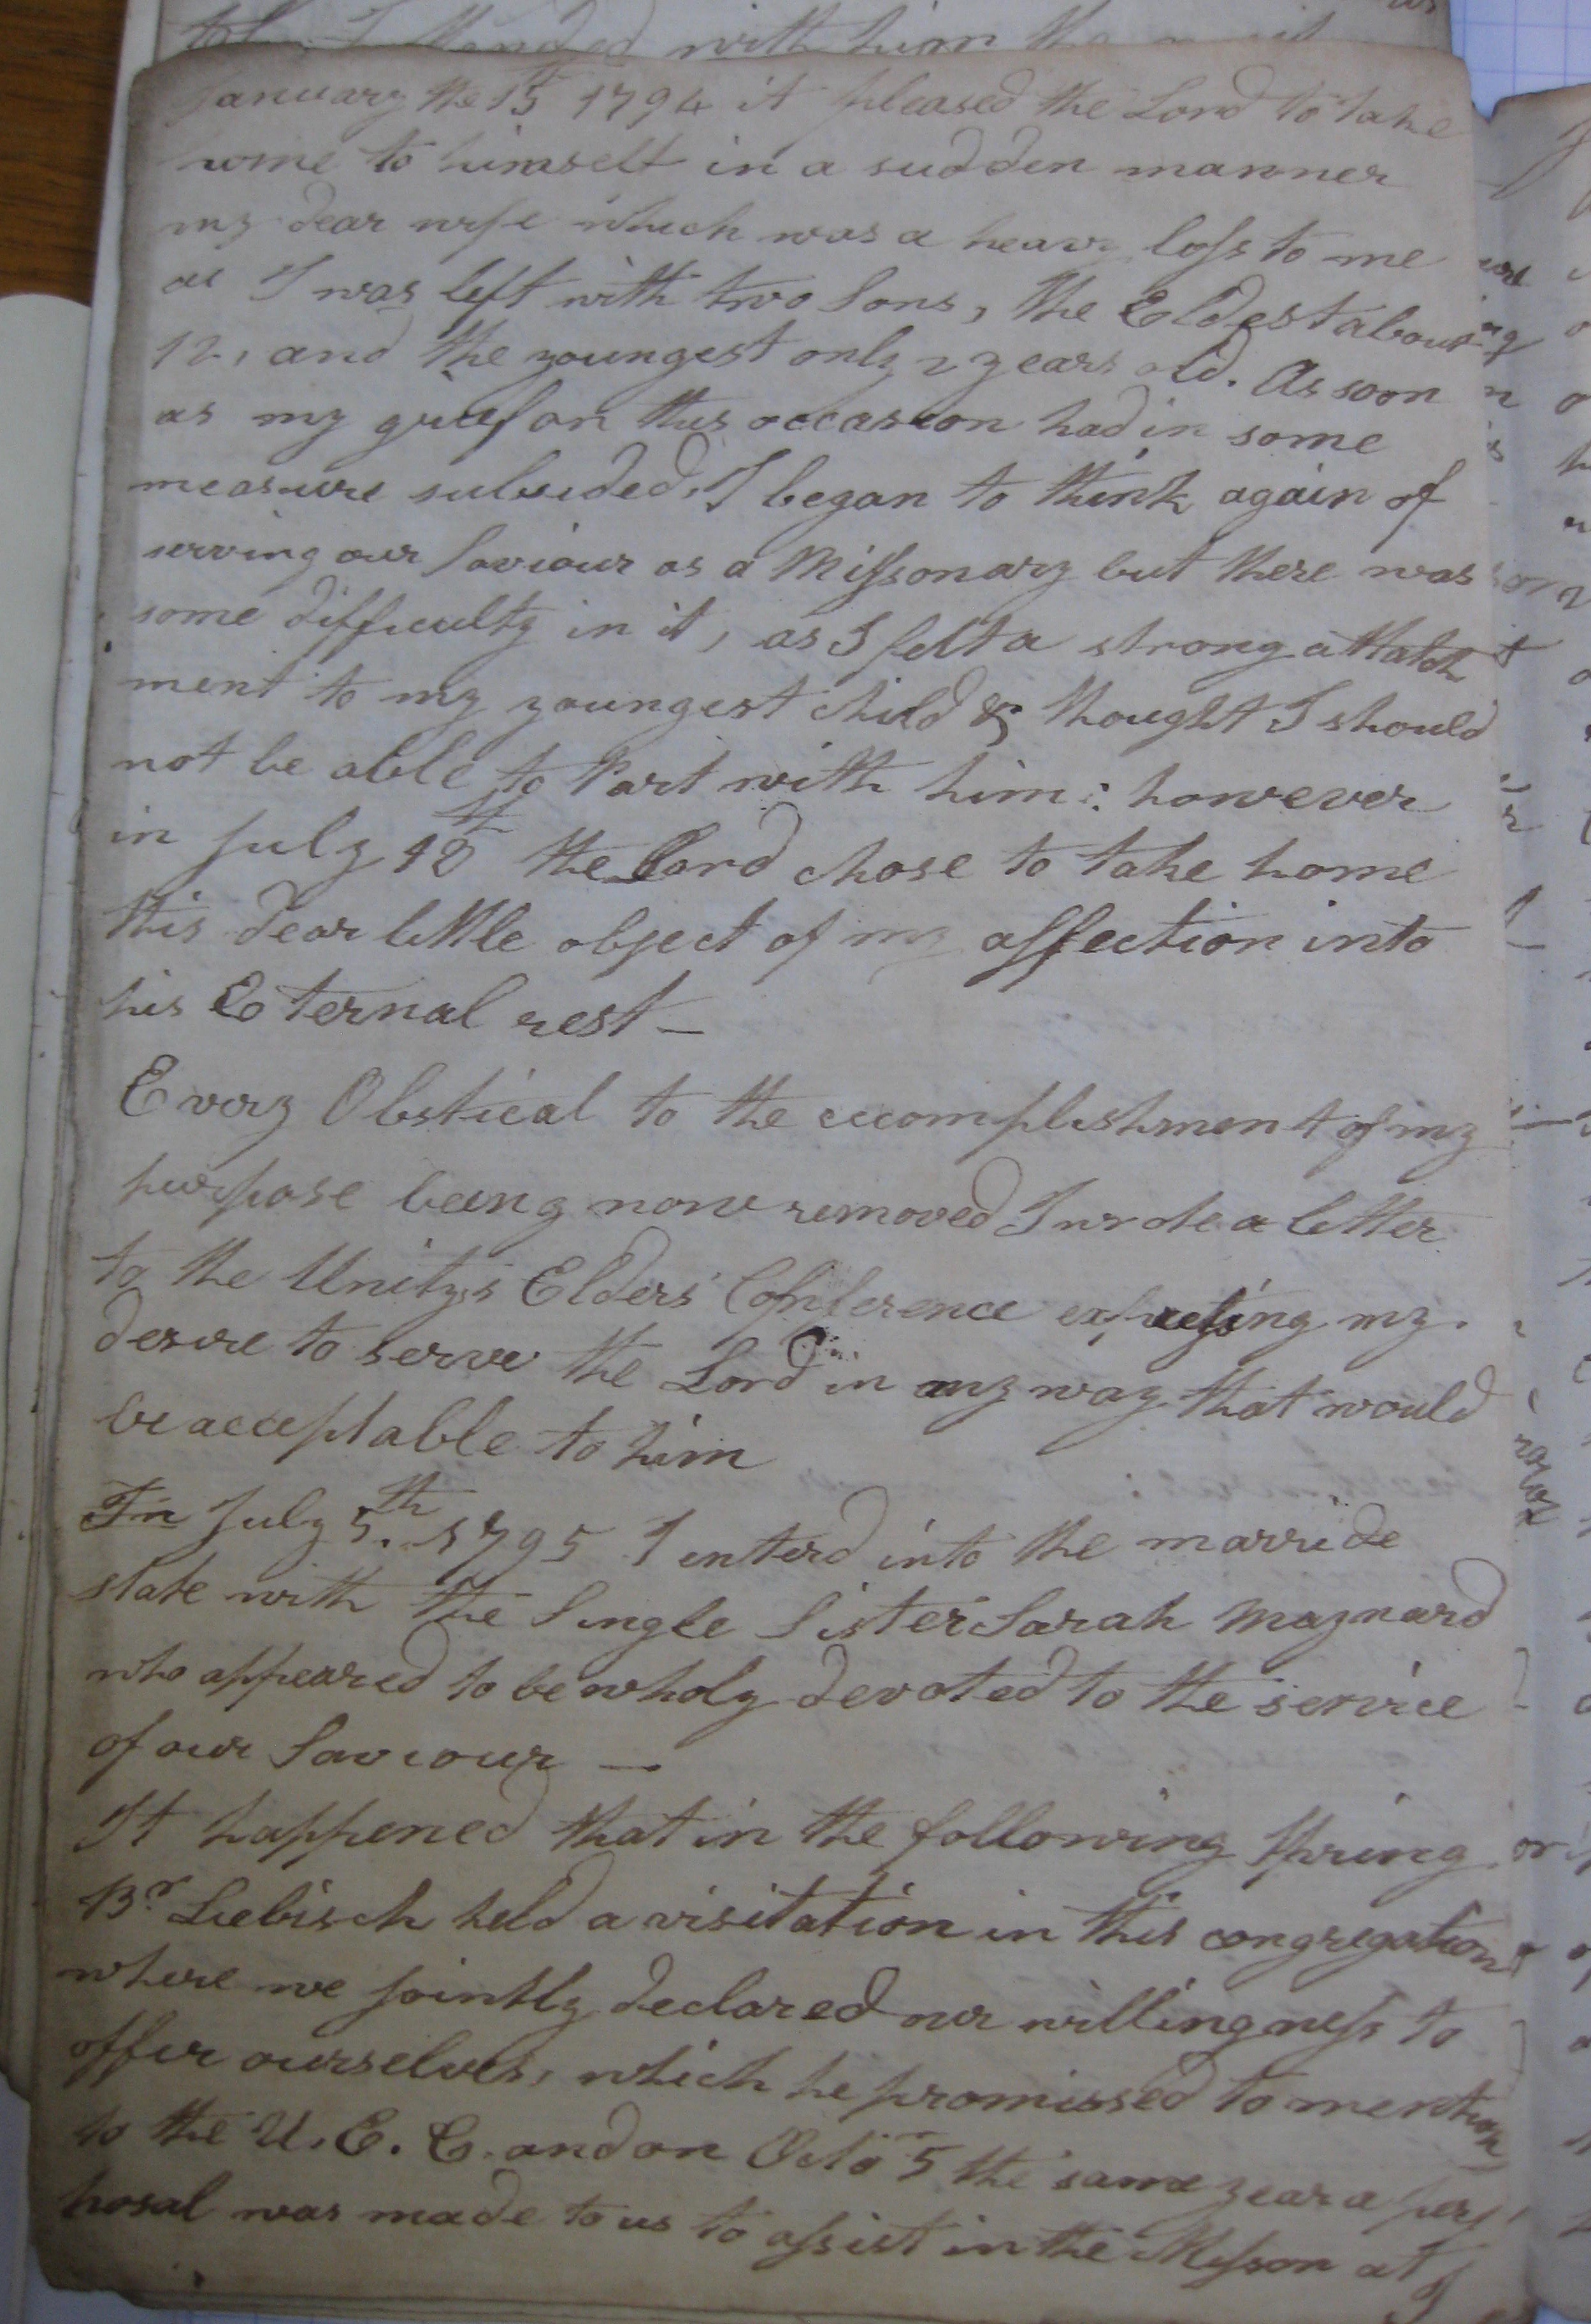 January the 15th 1794 it pleased the Lord to take
home to himself in a sudden manner
my dear wife which was a heavy loss to me
as I was left with two Sons, the Eldest about
12, and the youngest only 2 years old. As soon
as my grief on this occasion had in some
measure subsided, I began to think again of
serving our Saviour as a Missonary but there was
some difficulty in it, as I felt a strong attatch
ment to my youngest child & thought I should
not be able to Part with him: however
in July 18th the Lord chose to take home
this dear little object of my affection into
his Eternal rest —
Every Obstical to the accomplishment of my
purpose being now removed I wrote a letter
to the Unitys Elders Conference expressing my
desire to serve the Lord in any way that would
be acceptable to him
In July 5th. 1795 I enterd into the marride
state with the Single Sister Sarah Maynard
who appeared to be wholy devoted to the service
of our Saviour —
It happened that in the following Spring
Br Liebisch held a visitation in this congregation
where we jointly declared our willingness to
offer ourselves, which he promissed to mention
to the U. E. C. and on Octo 5 the same year a
posal was made to us to assist in the Misson at